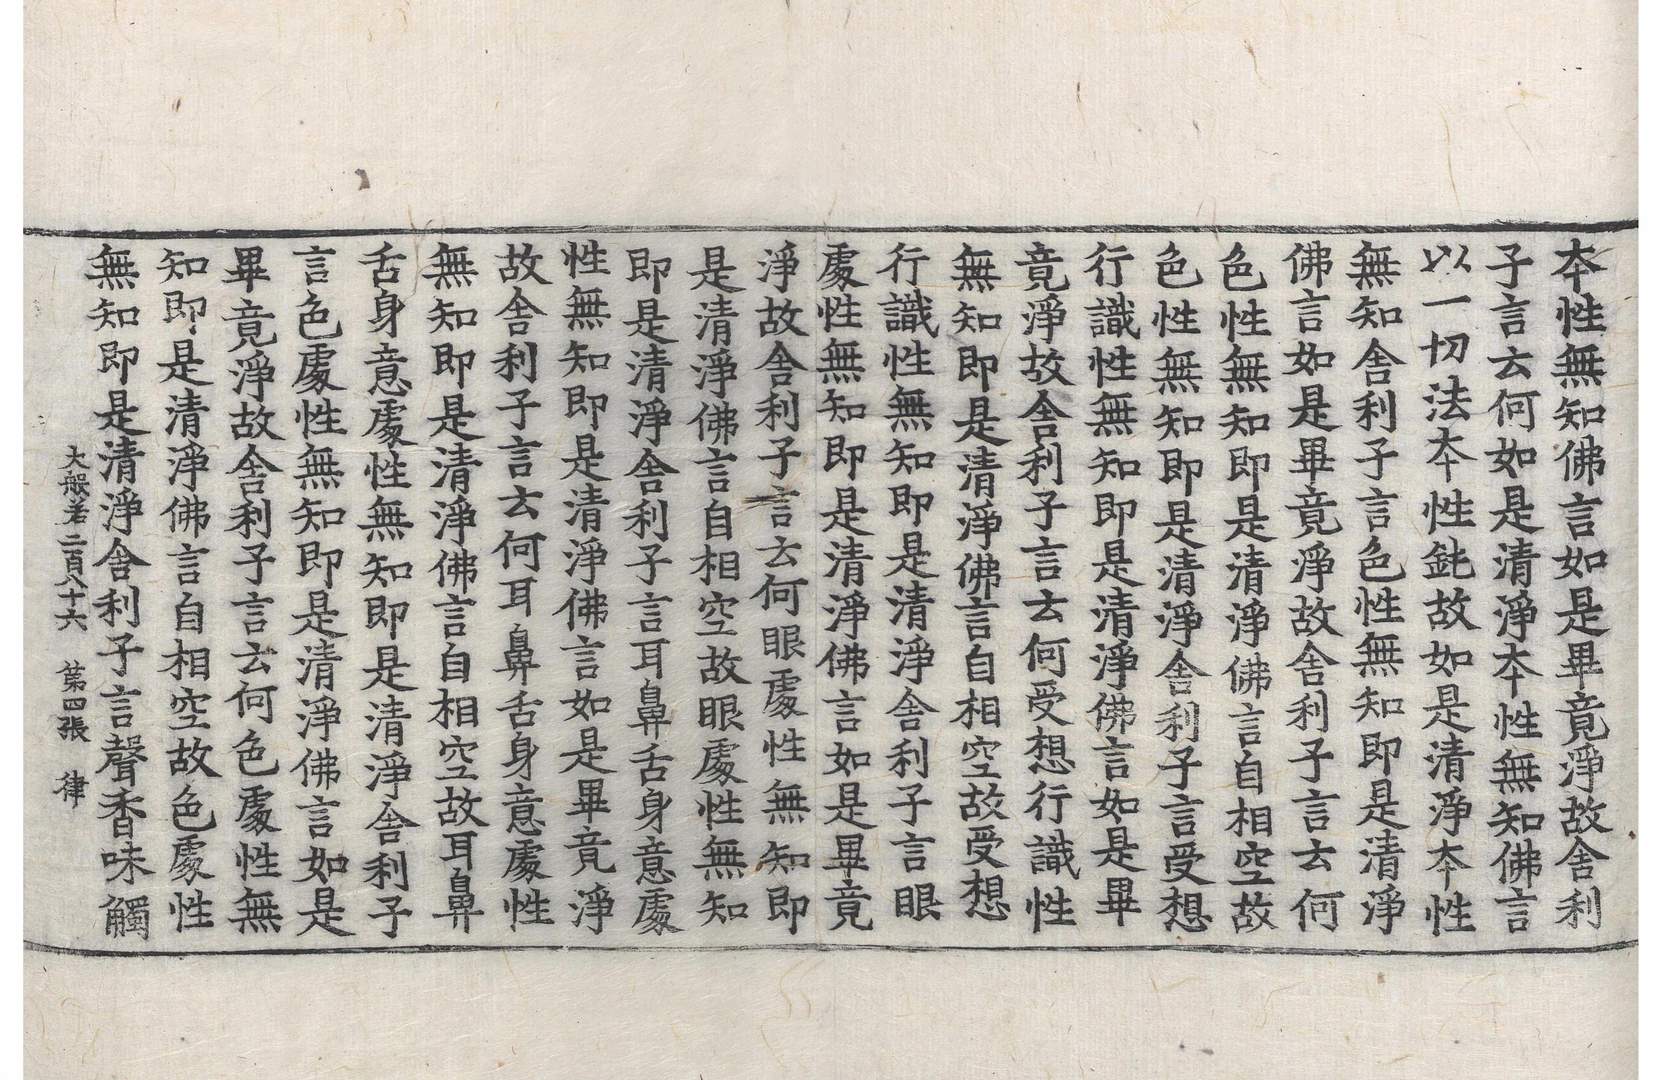 本性無知佛言如是畢竟淨故舍利
子言云何如是清淨本性無知佛言
以一切法本性鈍故如是清淨本性
無知舍利子言色性無知即是清淨
佛言如是畢竟淨故舍利子言云何
色性無知即是清淨佛言自相空故
色性無知即是清淨舍利子言受想
行識性無知即是清淨佛言如是畢
竟淨故舍利子言云何受想行識性
無知即是清淨佛言自相空故受想
行識性無知即是清淨舍利子言眼
處性無知即是清淨佛言如是畢竟
淨故舍利子言云何眼處性無知即
是清淨佛言自相空故眼處性無知
即是清淨舍利子言耳鼻舌身意處
性無知即是清淨佛言如是畢竟淨
故舍利子言云何耳鼻舌身意處性
無知即是清淨佛言自相空故耳鼻
舌身意處性無知即是清淨舍利子
言色處性無知即是清淨佛言如是
畢竟淨故舍利子言云何色處性無
知即是清淨佛言自相空故色處性
無知即是清淨舍利子言聲香味觸
大般若二百八十六 第四張 律